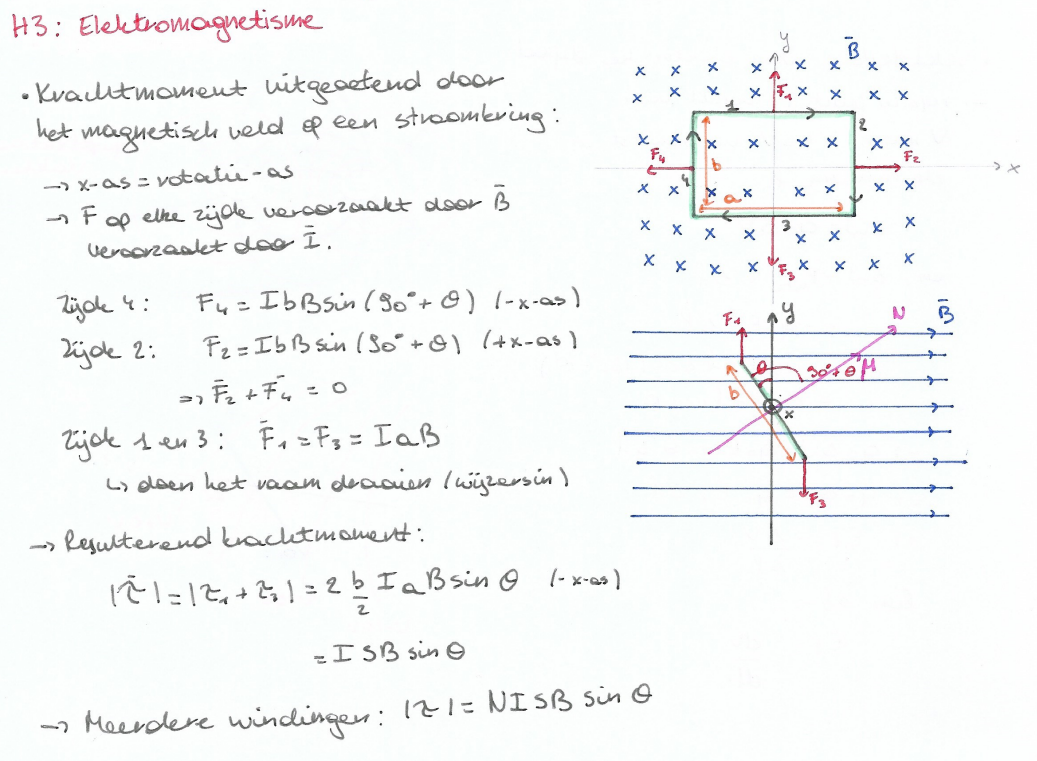 H3: Elektromagnetisme
• Krachtmoment uitgeoefend door
het magnetisch veld op een stroomkring:
→ x-as = rotatie-as
→ F̄ op elke zijde veroorzaakt door B̄
veroorzaakt door Ī.
Zijde 4: F₄ = IbB sin (90° + θ) (-x-as)
Zijde 2: F₂ = IbB sin (90° + θ) (+x-as)
=> F̄₂ + F̄₄ = 0
Zijde 1 en 3: F̄₁ = F₃ = IaB
↳ doen het raam draaien (wijzersin)
→ Resulterend krachtmoment:
|τ̄| = |τ₁ + τ₃| = 2 b/2 I a B sin θ (-x-as)
= I S B sin θ
→ Meerdere windingen: |τ| = N I S B sin θ
y
B̄
F₁
1
2
F₄
4
b
F₂
x
a
3
F₃
y
F₁
N
B̄
θ
90° + θ
μ
b
x
F₃